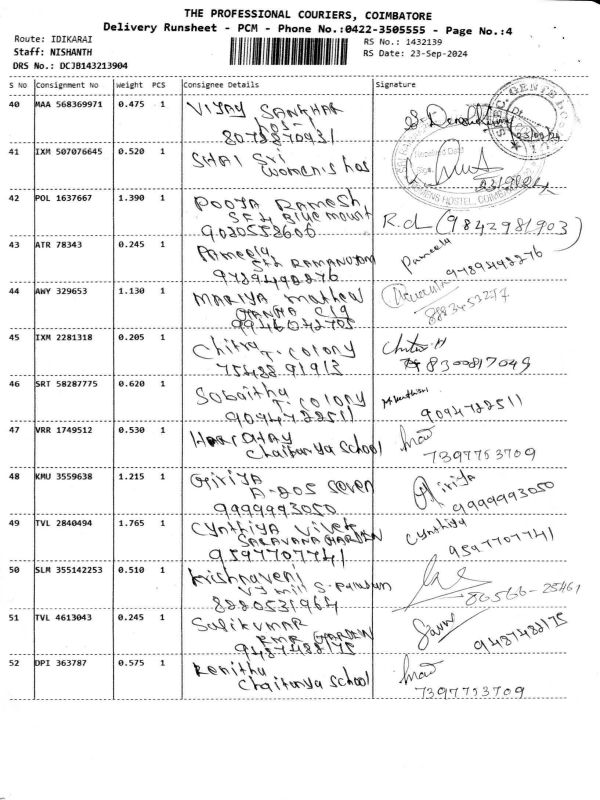 THE PROFESSIONAL COURIERS, COIMBATORE
Delivery Runsheet - PCM - Phone No.:0422-3505555 - Page No.:4
Route: IDIKARAI
RS No.: 1432139
Staff: NISHANTH
RS Date: 23-Sep-2024
DRS No.: DCJB143213904
S No Consignment No Weight PCS Consignee Details Signature
40 MAA 568369971 0.475 1 VIJAY SANKHAR
8078870431
23/09/24
41 IXM 507076645 0.520 1 SHAI Sri
womenis hos
42 POL 1637667 1.390 1 POOJA RAMESH
SFH Blue mount
9020558606 R.d (9842981903)
43 ATR 78343 0.245 1 Pameela Pameela
SFH RAMANUJAM
9789498876 9789498876
44 AWY 329653 1.130 1 MARIYA mathew
9946042705 8883453277
45 IXM 2281318 0.205 1 Chitra
T. colony
7548891913 8300817049
46 SRT 58287775 0.620 1 Sobaitha
T. colony
9094788511 9094788511
47 VRR 1749512 0.530 1
Chaitanya School
7397753709
48 KMU 3559638 1.215 1 Girija Girija
A-205 Seven
9999993050 9999993050
49 TVL 2840494 1.765 1 Cynthiya Vivek Cynthiya
SARAVANA GARDEN
9597707741 9597707741
50 SLM 355142253 0.510 1 Krishnaveni
8880531964 86566-25461
51 TVL 4613043 0.245 1 SasiKumar
RMR GARDEN
9487488175 9487488175
52 DPI 363787 0.575 1 Renitha
Chaitanya School
7397753709